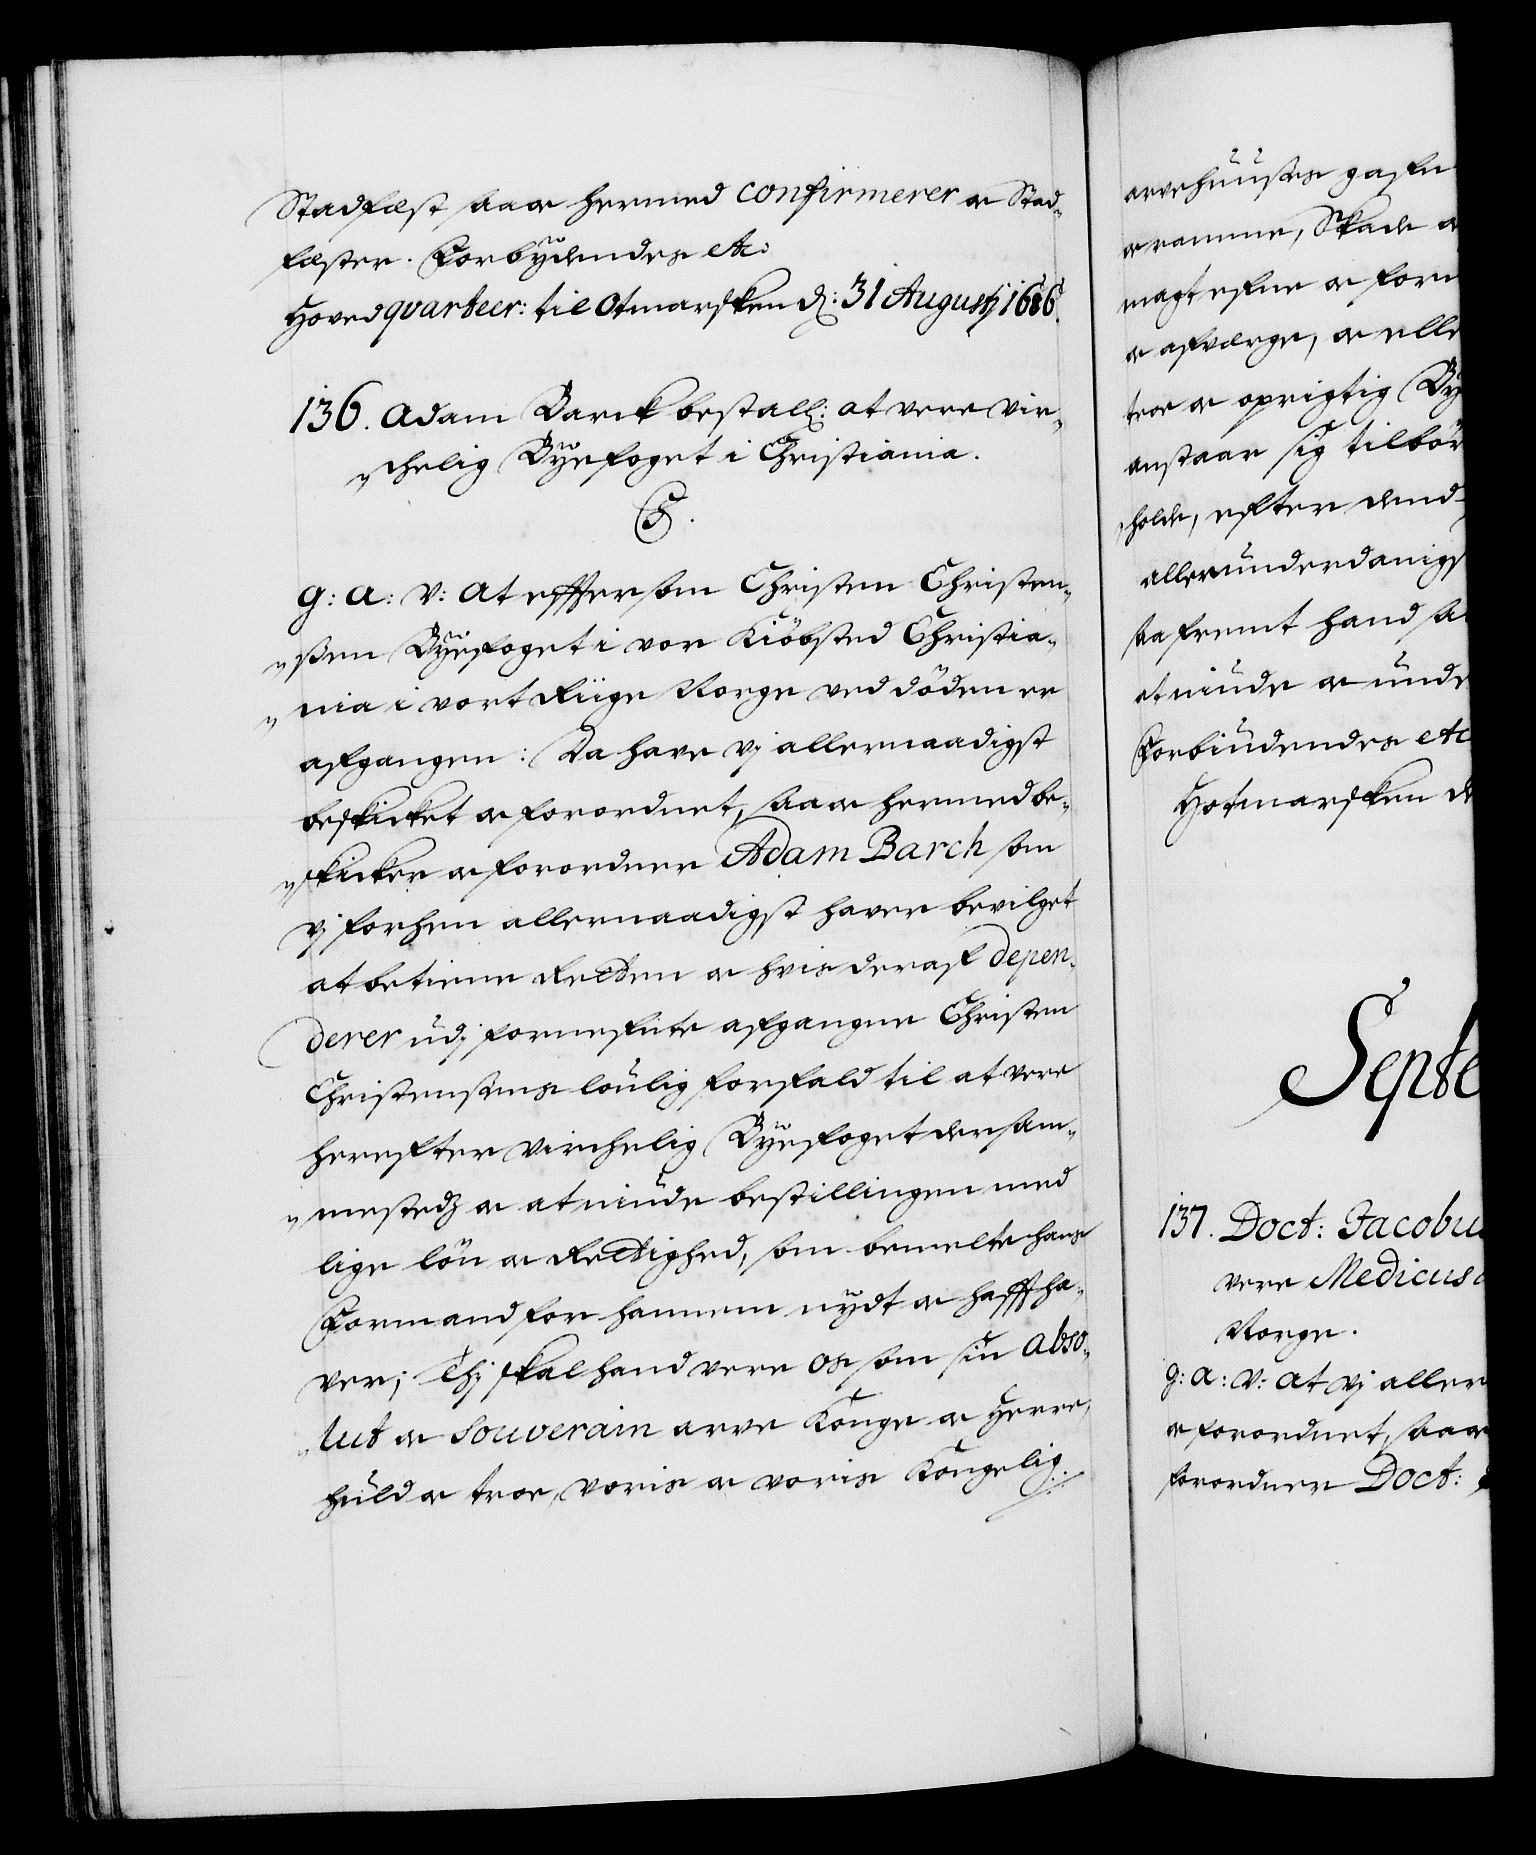 Stadfæst saa og hermed confirmerer og Stad-
fæster. Forbydendes etc:
Hovedqvarteer: til Otmarsken d: 31 Augustj 1686.
136. Adam Barck bestall: at vere vir-
chelig Byefoget i Christiania.
C5.
G: A: V: At effterson Christen Christen-
ßen Byefoget i vor Kiöbsted Christia-
nia i vort Riige Norge ved döden er
afgangen: Da have vj allernaadigst
beskicket og forordnet, saa og hermed be-
skicker og forordner Adam Barch som
vj forhen allernaadigst haver bevilget
at betiene Retten og hvis deraf depen-
derer udj formeldte afgangne Christen
Christensens loulig forfald til at vere
herefter virchelig Byefoget der sam-
mestedz og at niude bestillingen med
lige lön og Rettighed, som bemelte hans
Formand for hannem nydt og hafft ha-
ver; Thj skal hand vere os som sin abso-
lut og souverain arve Konge og Herre,
huld og troe, voris og voris Kongelig
arvehuuses gafn
og ramme, Skade og
magt efne og form
og afverge, og elle
troe og oprigtig By
anstaar sig tilbör
holde, efter dend
allerunderdanigs
ta fremt hand sa
at niude og unde
Forbiudendes etc
Hotmarsken d
Septe
137. Doct: Jacobu
vere Medicus
Norge.
G: A: V: At vj aller
og forordnet, saa og
forordner Doct: